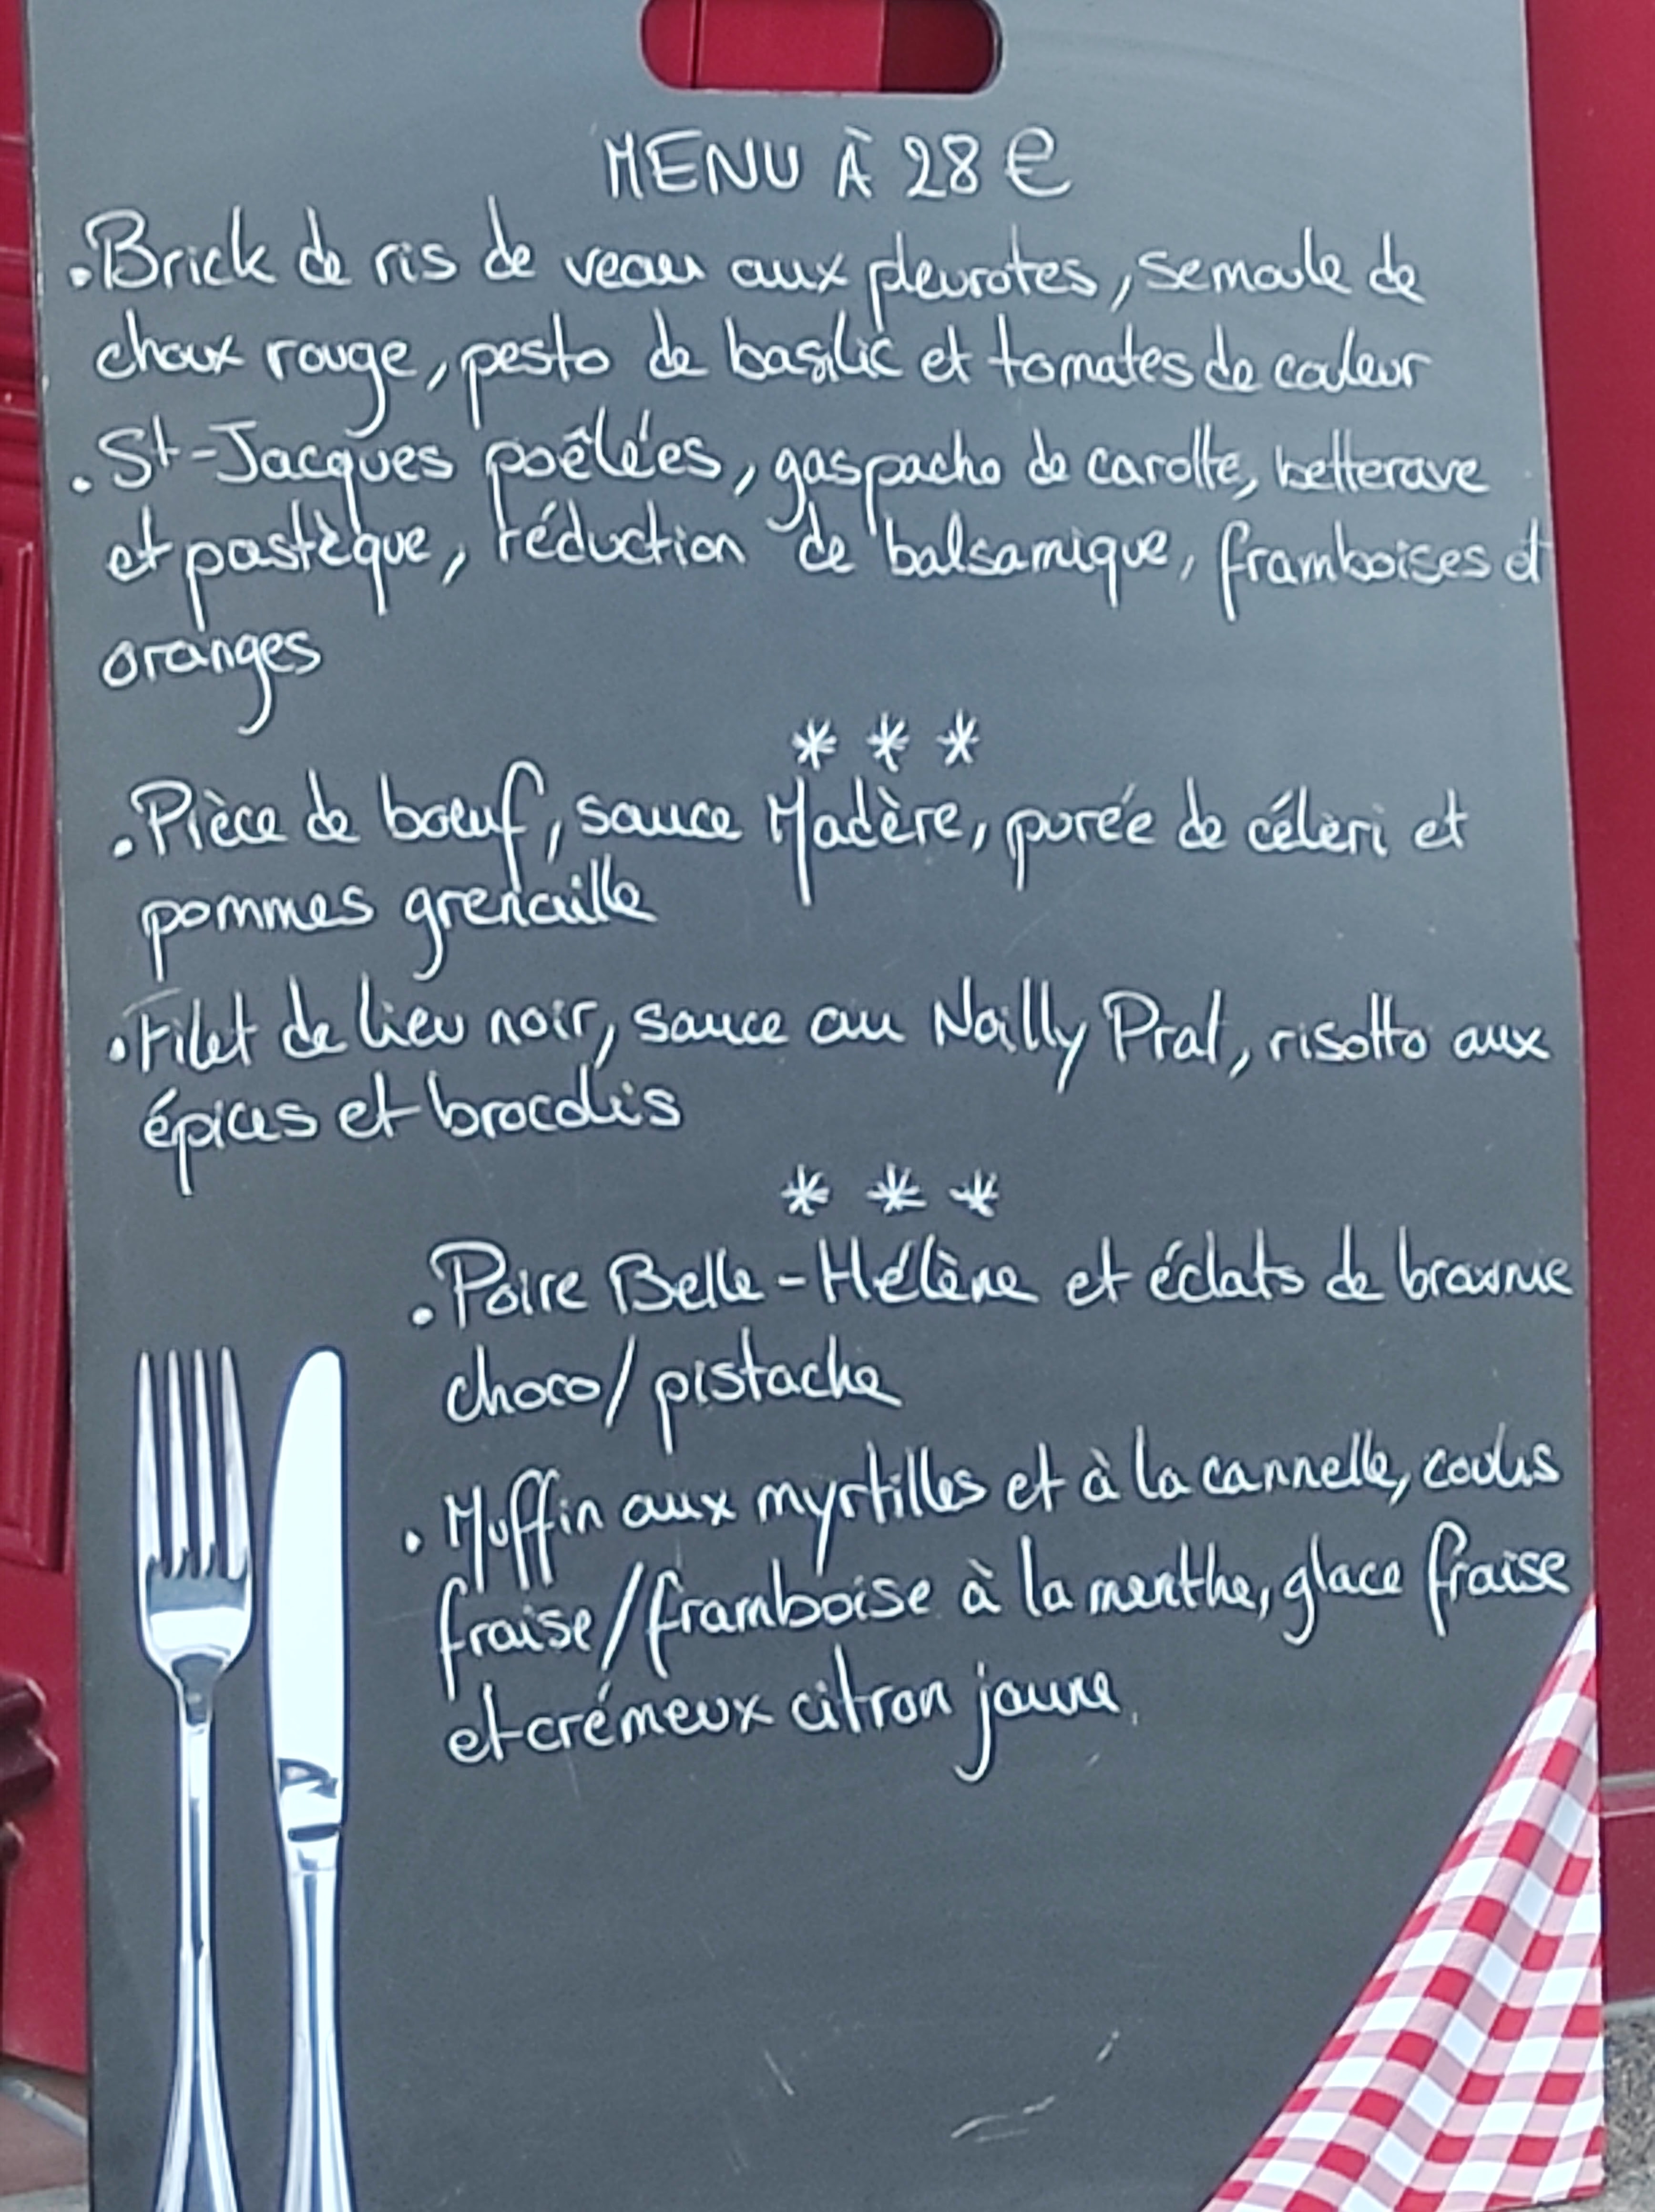 MENU À 28 €
.Brick de ris de veau aux pleurotes, semoule de
choux rouge, pesto de basilic et tomates de couleur
.St-Jacques poêlées, gaspacho de carotte, betterave
et pastèque, réduction de balsamique, framboises et
oranges
* * *
.Pièce de bœuf, sauce Madère, purée de céleri et
pommes grenaille
.Filet de lieu noir, sauce au Noilly Prat, risotto aux
épices et brocolis
* * *
.Poire Belle-Hélène et éclats de brownie
choco/pistache
.Muffin aux myrtilles et à la cannelle, coulis
fraise/framboise à la menthe, glace fraise
et crémeux citron jaune.